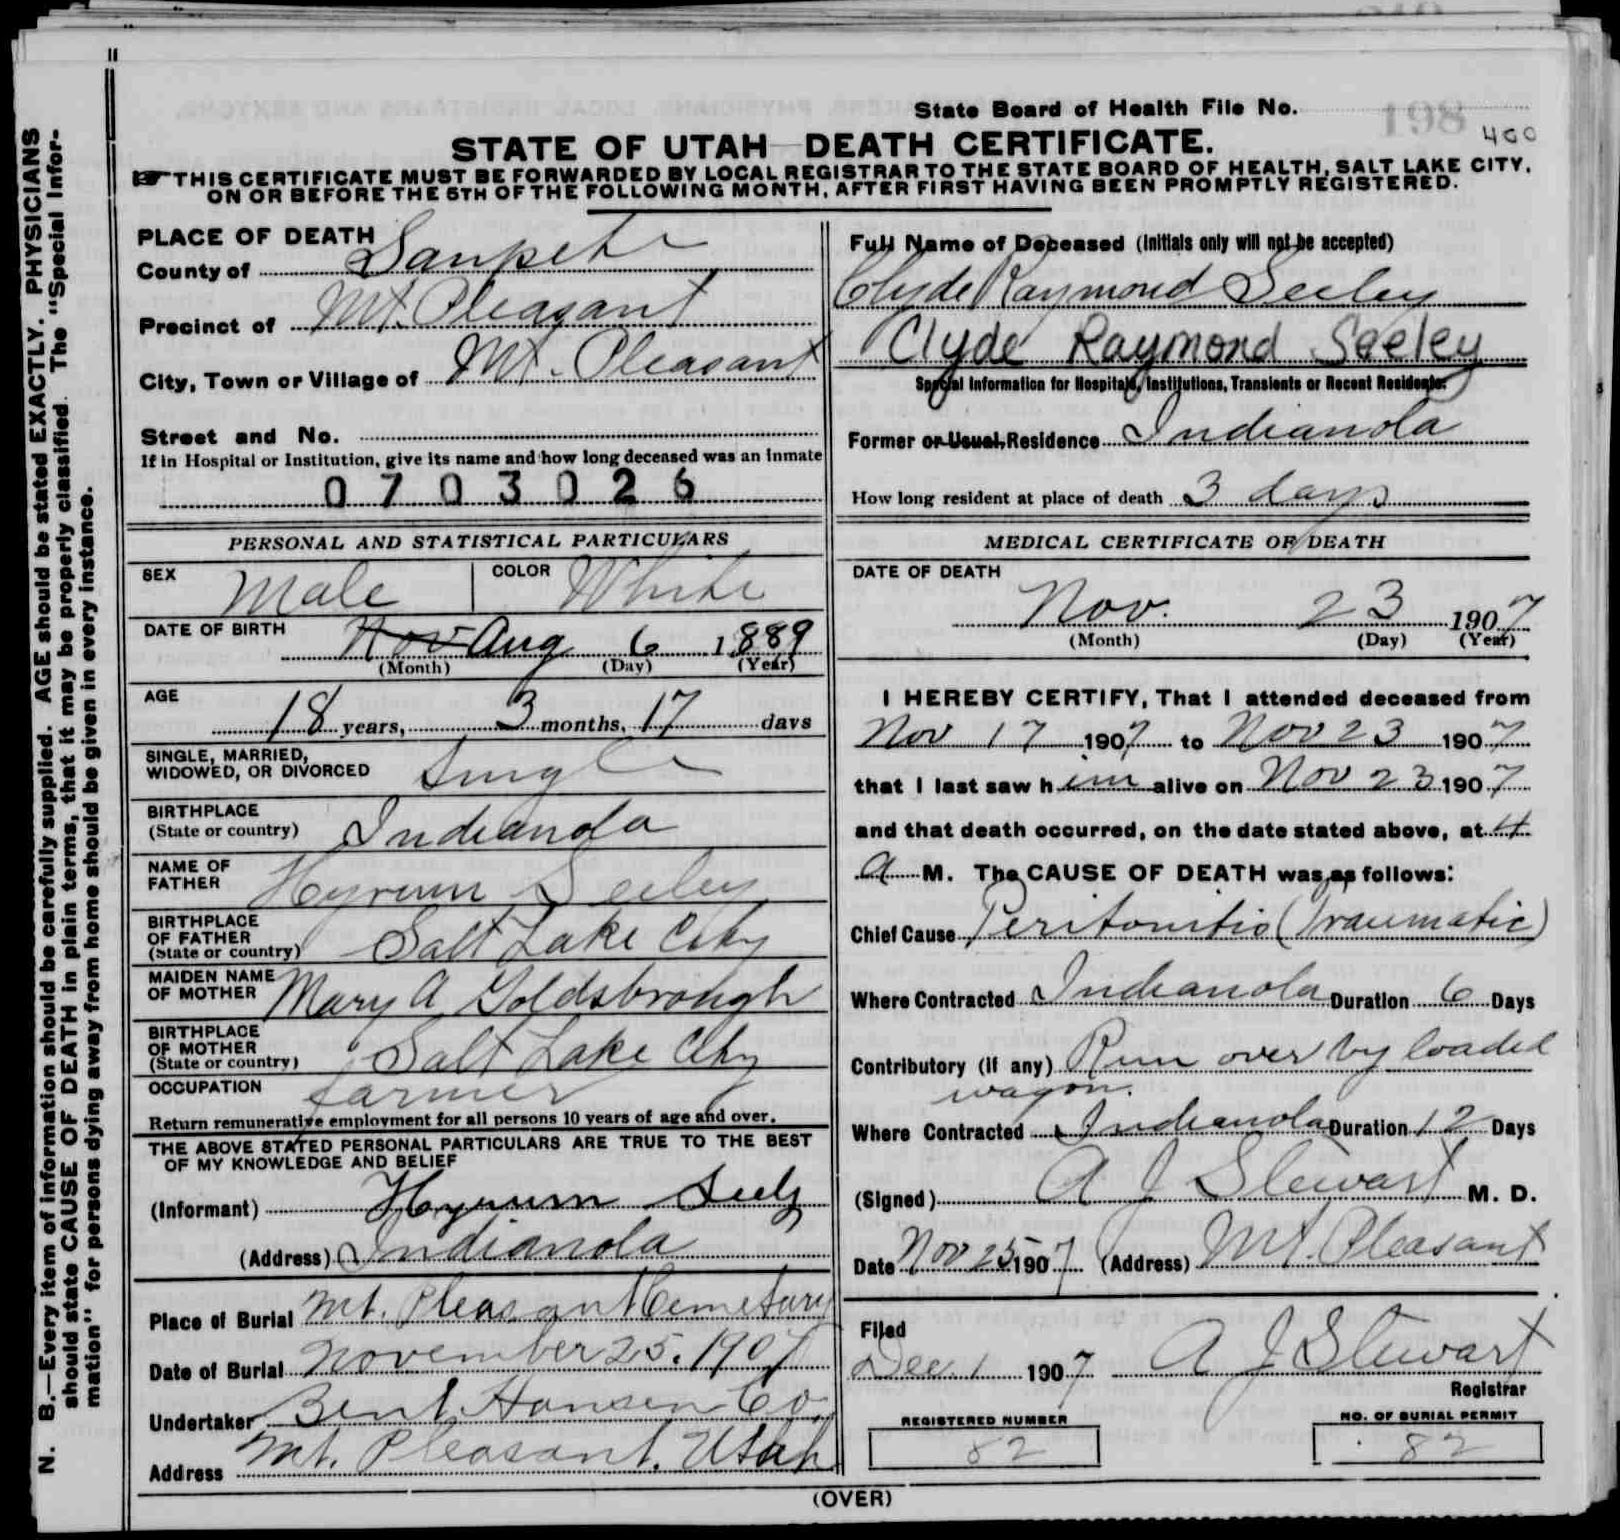 N. B.—Every item of information should be carefully supplied. AGE should be stated EXACTLY. PHYSICIANS
should state CAUSE OF DEATH in plain terms, that it may be properly classified. The "Special Infor-
mation" for persons dying away from home should be given in every instance.
State Board of Health File No.
198
400
STATE OF UTAH—DEATH CERTIFICATE.
THIS CERTIFICATE MUST BE FORWARDED BY LOCAL REGISTRAR TO THE STATE BOARD OF HEALTH, SALT LAKE CITY,
ON OR BEFORE THE 5TH OF THE FOLLOWING MONTH, AFTER FIRST HAVING BEEN PROMPTLY REGISTERED.
PLACE OF DEATH
County of Sanpete
Precinct of Mt. Pleasant
City, Town or Village of Mt. Pleasant
Street and No.
If in Hospital or Institution, give its name and how long deceased was an inmate
0703026
Full Name of Deceased (Initials only will not be accepted)
Clyde Raymond Seeley
Clyde Raymond Seeley
Special Information for Hospitals, Institutions, Transients or Recent Residents.
Former or Usual, Residence Indianola
How long resident at place of death 3 days
PERSONAL AND STATISTICAL PARTICULARS
SEX Male COLOR White
DATE OF BIRTH Nov Aug 6 1889
(Month) (Day) (Year)
AGE 18 years, 3 months, 17 days
SINGLE, MARRIED,
WIDOWED, OR DIVORCED Single
BIRTHPLACE
(State or country) Indianola
NAME OF
FATHER Hyrum Seeley
BIRTHPLACE
OF FATHER
(State or country) Salt Lake City
MAIDEN NAME
OF MOTHER Mary A Goldsbrough
BIRTHPLACE
OF MOTHER
(State or country) Salt Lake City
OCCUPATION farmer
Return remunerative employment for all persons 10 years of age and over.
THE ABOVE STATED PERSONAL PARTICULARS ARE TRUE TO THE BEST
OF MY KNOWLEDGE AND BELIEF
(Informant) Hyrum Seely
(Address) Indianola
Place of Burial Mt. Pleasant Cemetary
Date of Burial November 25. 1907
Undertaker Bent Hansen Co.
Address Mt. Pleasant. Utah
MEDICAL CERTIFICATE OF DEATH
DATE OF DEATH
Nov. 23 1907
(Month) (Day) (Year)
I HEREBY CERTIFY, That I attended deceased from
Nov 17 1907 to Nov 23 1907
that I last saw him alive on Nov 23 1907
and that death occurred, on the date stated above, at 4
a M. The CAUSE OF DEATH was as follows:
Chief Cause Peritonitis (Traumatic)
Where Contracted Indianola Duration 6 Days
Contributory (if any) Run over by loaded
wagon.
Where Contracted Indianola Duration 12 Days
(Signed) A J Stewart M. D.
Date Nov 25 1907 (Address) Mt. Pleasant
Filed
Dec. 1 1907 A J Stewart
Registrar
REGISTERED NUMBER
82
NO. OF BURIAL PERMIT
82
(OVER)